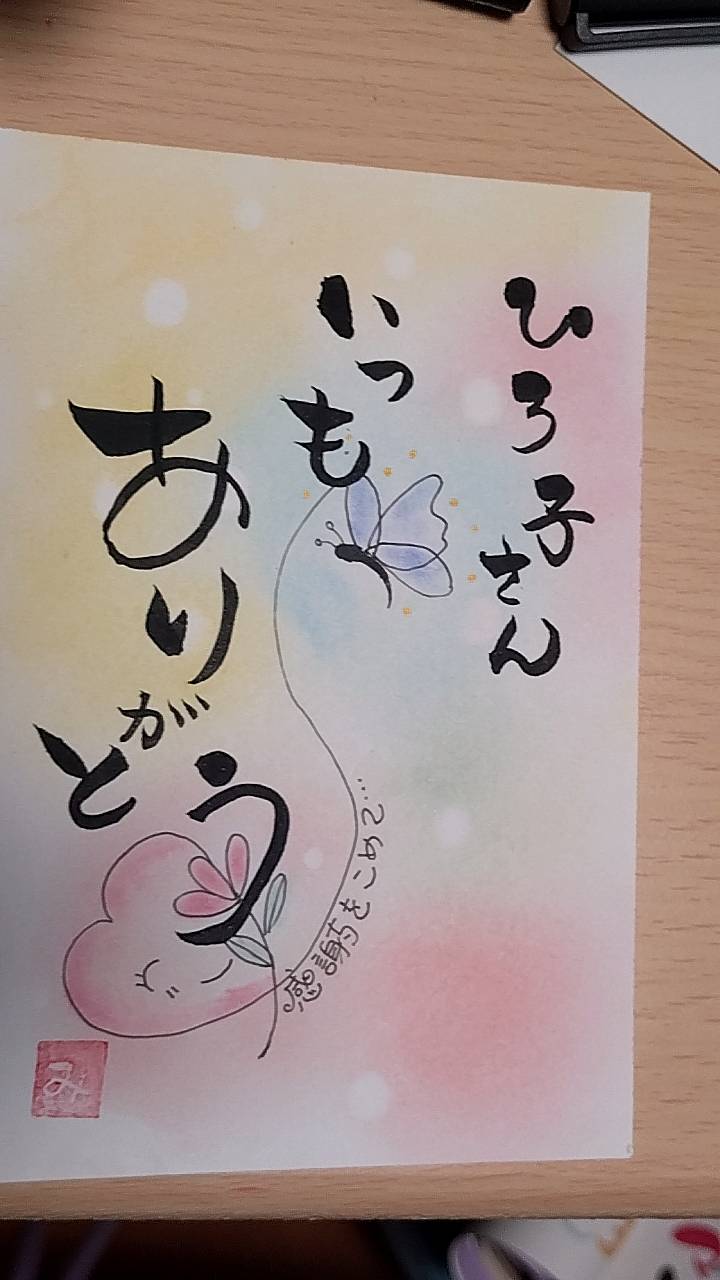 ひろ子さん
いつも
ありがとう
感謝をこめて…
み